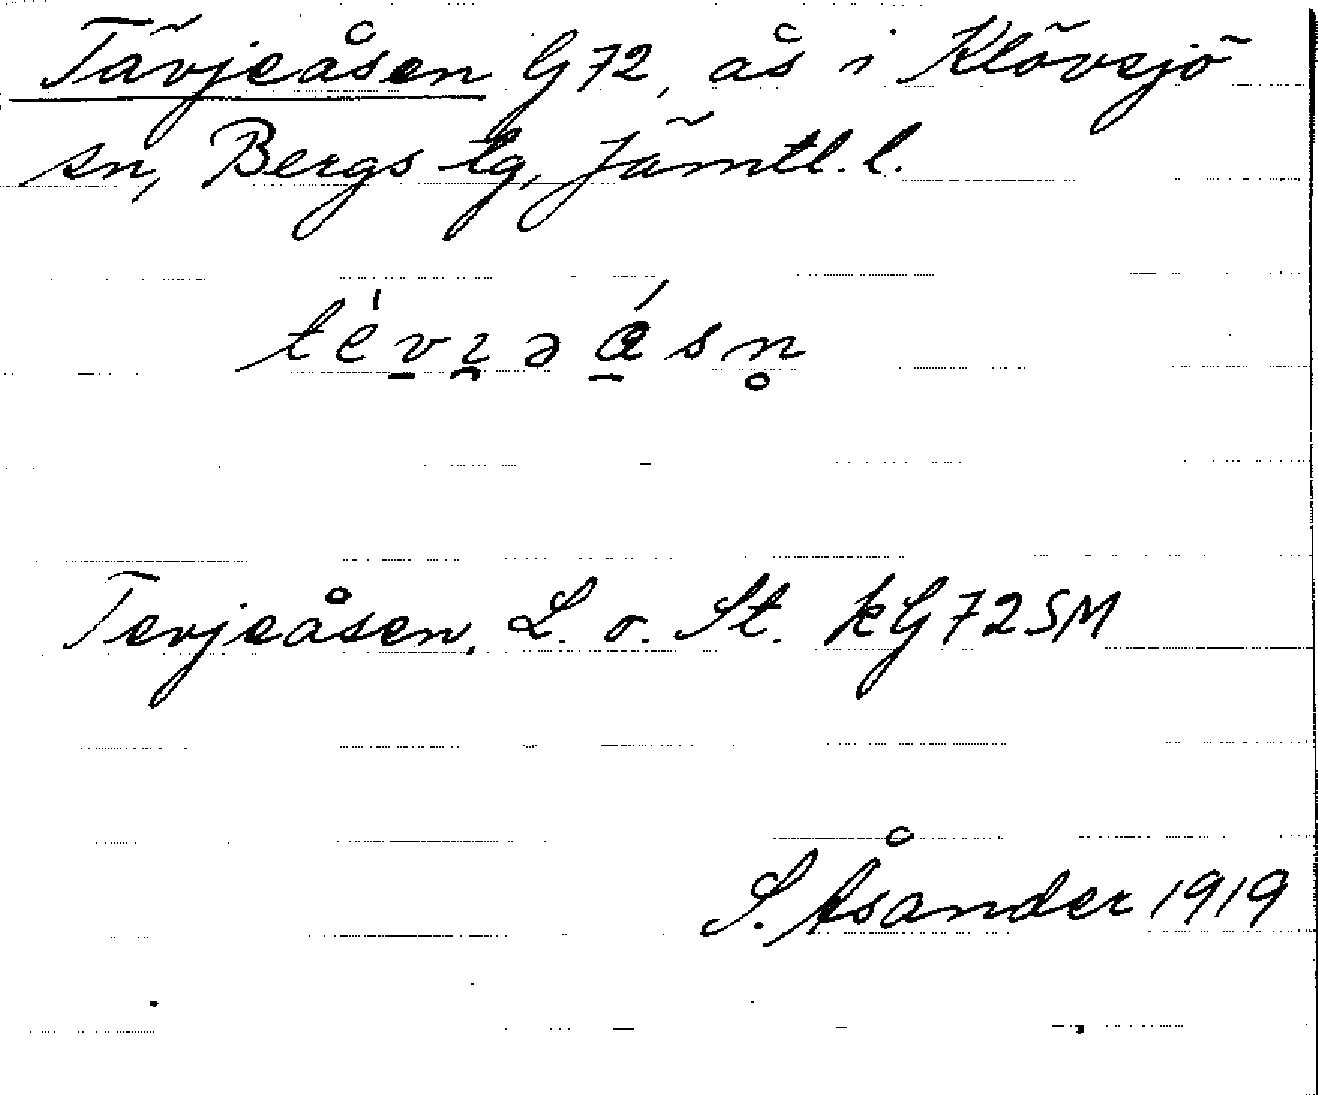 Tävjeåsen G 72, ås i Klövsjö
sn, Bergs tg, Jämtl. l.
Tevjeåsen, L. o. St. kG 72 SM
S. Åsander 1919